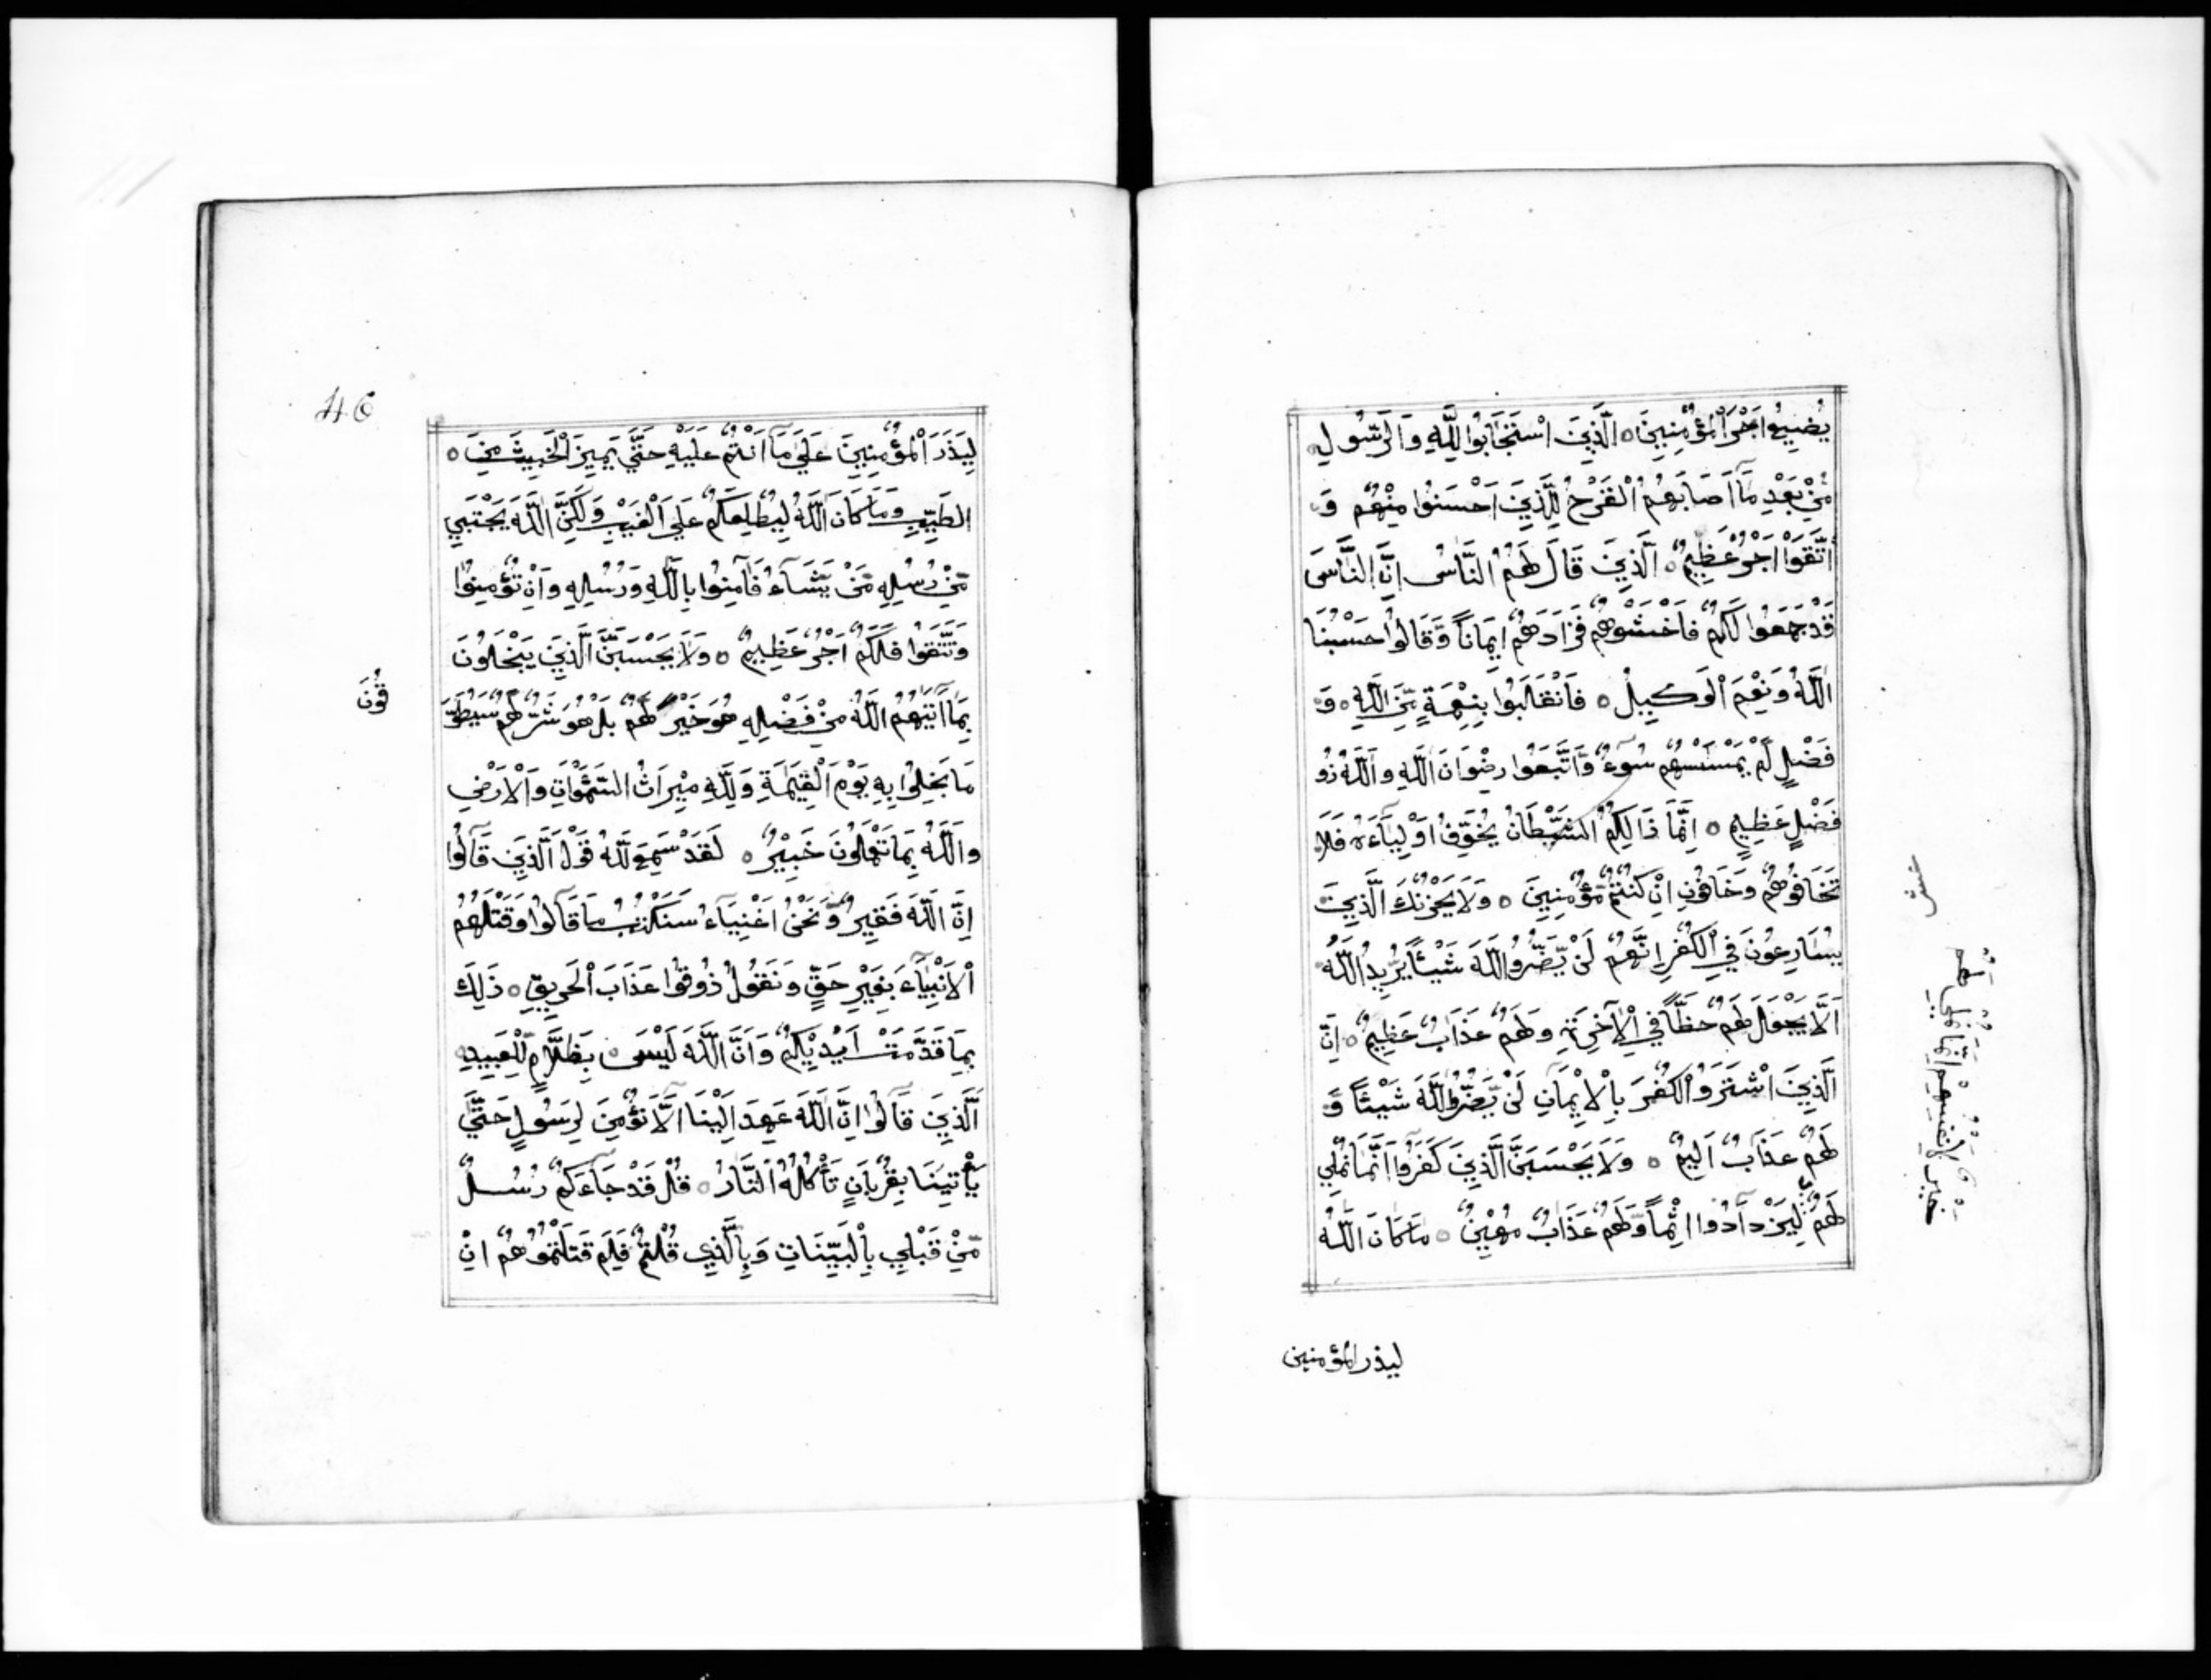 يُضِيعُ اَجْرَ اْلمُؤْمِنِينَ ○ اَلَّذِينَ اسْتَجَابُوا لِلّٰهِ وَالرَّسُولِ
مِنْ بَعْدِ مَآ اَصَابَهُمُ اْلقَرْحُ لِلَّذِينَ اَحْسَنُوا مِنْهُمْ وَ
اتَّقَوْا اَجْرٌ عَظِيمٌ ○ اَلَّذِينَ قَالَ لَهُمُ النَّاسُ اِنَّ النَّاسَ
قَدْ جَمَعُوا لَكُمْ فَاخْشَوْهُمْ فَزَادَهُمْ اِيمَاناً وَّقَالُوا حَسْبُنَا
اللّٰهُ وَنِعْمَ اْلوَكِيلُ ○ فَانْقَلَبُوا بِنِعْمَةٍ مِّنَ اللّٰهِ ○ وَ
فَضْلٍ لَّمْ يَمْسَسْهُمْ سُوٓءٌ وَّاتَّبَعُوا رِضْوَانَ اللّٰهِ وَاللّٰهُ ذُو
فَضْلٍ عَظِيمٍ ○ اِنَّمَا ذَالِكُمُ الشَّيْطَانُ يُخَوِّفُ اَوْلِيَآءَهُ فَلَا
تَخَافُوهُمْ وَخَافُونِ اِنْ كُنْتُمْ مُّؤْمِنِينَ ○ وَلَا يَحْزُنْكَ الَّذِينَ
يُسَارِعُونَ فِي اْلكُفْرِ اِنَّهُمْ لَنْ يَّضُرُّوا اللّٰهَ شَيْئًا يُرِيدُ اللّٰهُ
اَلَّا يَجْعَلَ لَهُمْ حَظًّا فِي اْلاٰخِرَةِ وَلَهُمْ عَذَابٌ عَظِيمٌ ○ اِنَّ
الَّذِينَ اشْتَرَوُا اْلكُفْرَ بِاْلاِيْمَانِ لَنْ يَّضُرُّوا اللّٰهَ شَيْئًا وَّ
لَهُمْ عَذَابٌ اَلِيمٌ ○ وَلَا يَحْسَبَنَّ الَّذِينَ كَفَرُوا اَنَّمَا نُمْلِي
لَهُمْ لِيَزْدَادُوا اِثْماً وَّلَهُمْ عَذَابٌ مُّهِيْنٌ ○ مَا كَانَ اللّٰهُ
ليذر المؤمنين
عشر
خير لانفسهم انما نملي لهم
46
لِيَذَرَ اْلمُؤْمِنِينَ عَلَيٰ مَآ اَنْتُمْ عَلَيْهِ حَتَّيٰ يَمِيزَ اْلخَبِيثَ مِنَ ○
الطَّيِّبِ وَمَا كَانَ اللّٰهُ لِيُطْلِعَكُمْ عَلَي اْلغَيْبِ وَلٰكِنَّ اللّٰهَ يَجْتَبِي
مِنْ رُسُلِهِ مَنْ يَّشَآءُ فَاٰمِنُوا بِاللّٰهِ وَرُسُلِهِ وَاِنْ تُؤْمِنُوا
وَتَتَّقُوا فَلَكُمْ اَجْرٌ عَظِيمٌ ○ وَلَا يَحْسَبَنَّ الَّذِينَ يَبْخَلُونَ
بِمَآ اٰتٰيهُمُ اللّٰهُ مِنْ فَضْلِهِ هُوَ خَيْرٌ لَّهُمْ بَلْ هُوَ شَرٌّ لَّهُمْ سَيُطَوَّ
قُونَ
مَا بَخِلُوا بِهِ يَوْمَ اْلقِيٰمَةِ وَلِلّٰهِ مِيْرَاثُ السَّمٰوَاتِ وَاْلاَرْضِ
وَاللّٰهُ بِمَا تَعْمَلُونَ خَبِيْرٌ ○ لَقَدْ سَمِعَ اللّٰهُ قَوْلَ الَّذِينَ قَالُوا
اِنَّ اللّٰهَ فَقِيرٌ وَّنَحْنُ اَغْنِيَآءُ سَنَكْتُبُ مَا قَالُوا وَقَتْلَهُمُ
اْلاَنْبِيَآءَ بِغَيْرِ حَقٍّ وَنَقُولُ ذُوقُوا عَذَابَ اْلحَرِيقِ ○ ذٰلِكَ
بِمَا قَدَّمَتْ اَيْدِيْكُمْ وَاَنَّ اللّٰهَ لَيْسَ ○ بِظَلَّامٍ لِّلْعَبِيدِ
اَلَّذِينَ قَالُوا اِنَّ اللّٰهَ عَهِدَ اِلَيْنَا اَلَّا نُؤْمِنَ لِرَسُولٍ حَتَّيٰ
يَأْتِيَنَا بِقُرْبَانٍ تَأْكُلُهُ النَّارُ ○ قُلْ قَدْ جَآءَكُمْ رُسُلٌ
مِّنْ قَبْلِي بِاْلبَيِّنَاتِ وَبِالَّذِي قُلْتُمْ فَلِمَ قَتَلْتُمُوهُمْ اِنْ